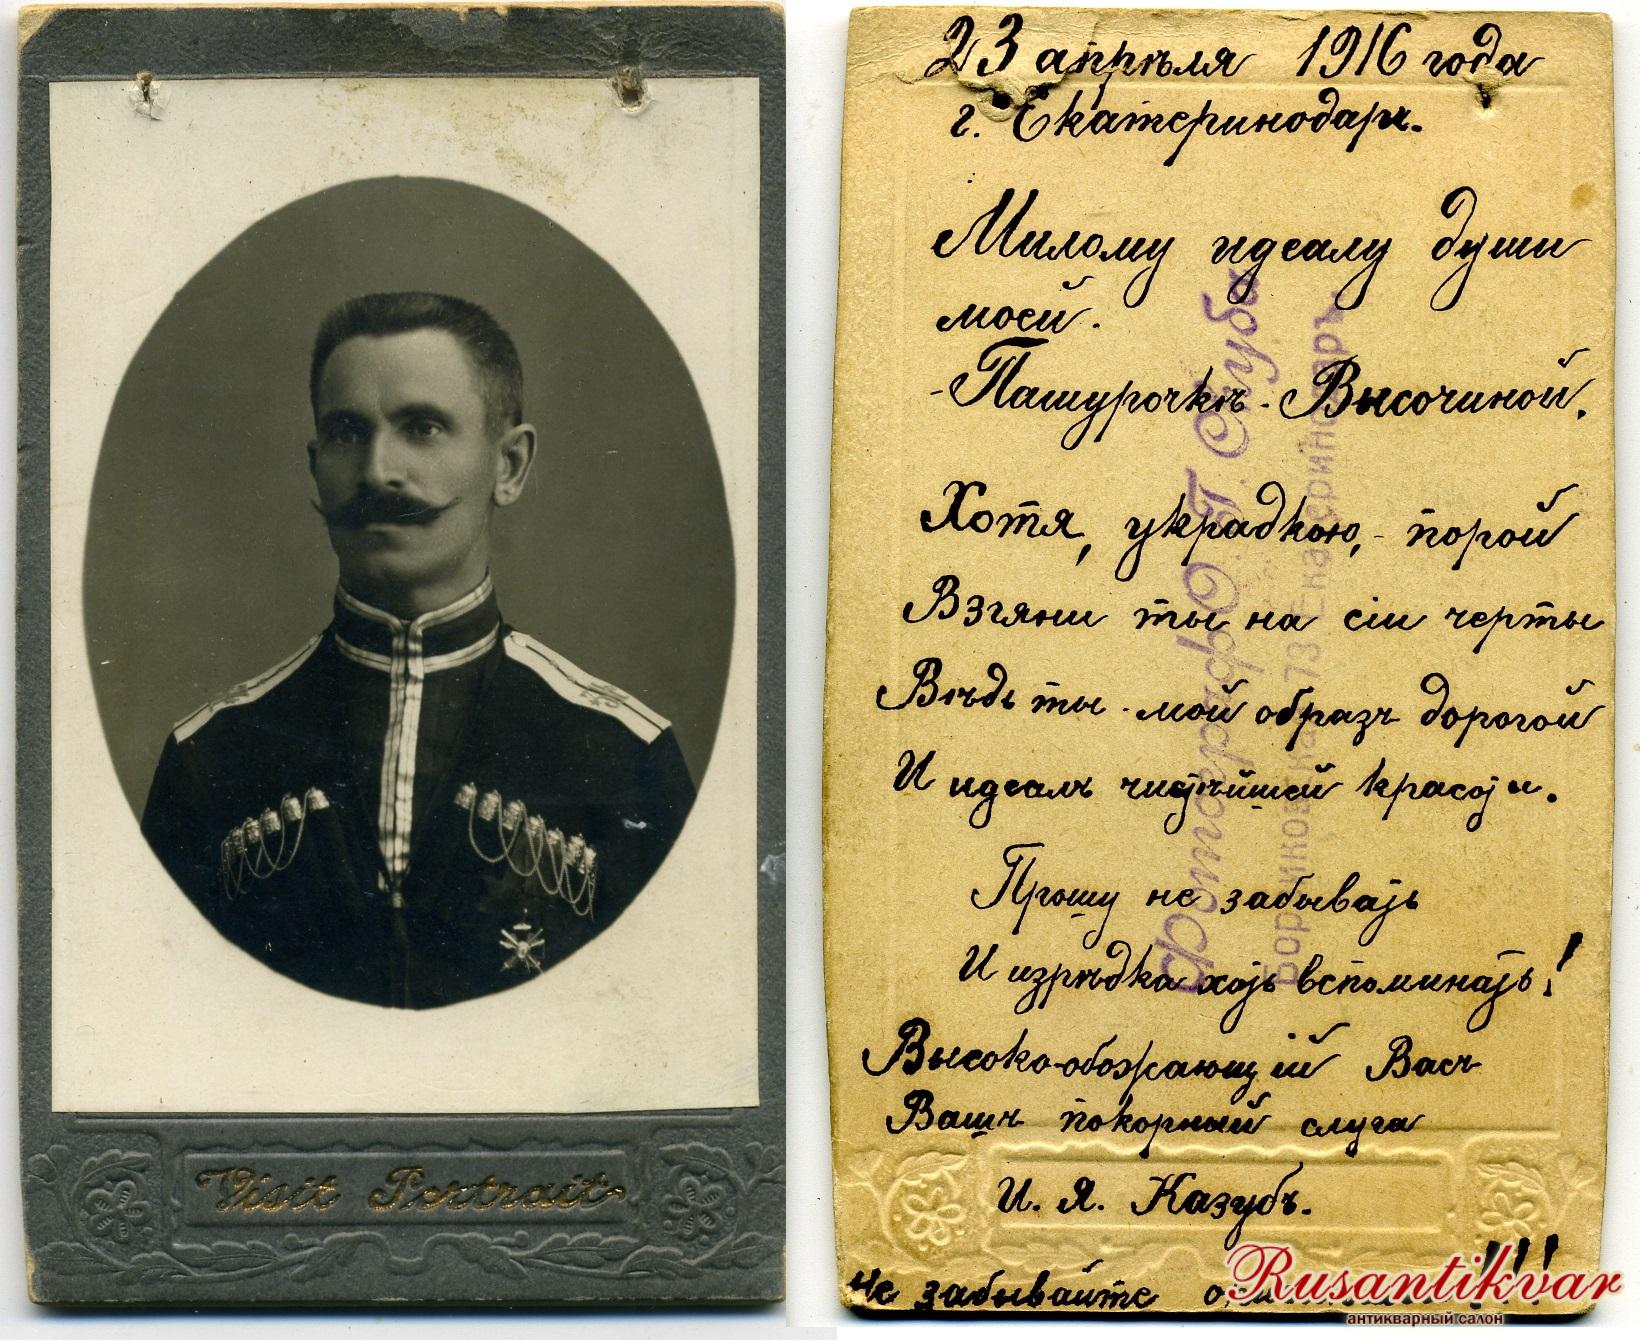 Visit Portrait
23 апрѣля 1916 года
г. Екатеринодаръ.
Милому идеалу души
моей.
-Пашурочкѣ- Высочиной.
Хотя, украдкою,- порой
Взгяни ты на сіи черты
Вѣдь ты - мой образъ дорогой
И идеалъ чистѣйшей красоты.
Прошу не забывать
И изрѣдка хоть вспоминать!
Высоко-обожающій Васъ
Вашъ покорный слуга
И. Я. Казубъ.
Не забывайте !!!
Фотограф. П. Скуба
Екатеринодаръ.
Rusantikvar
антикварный салон